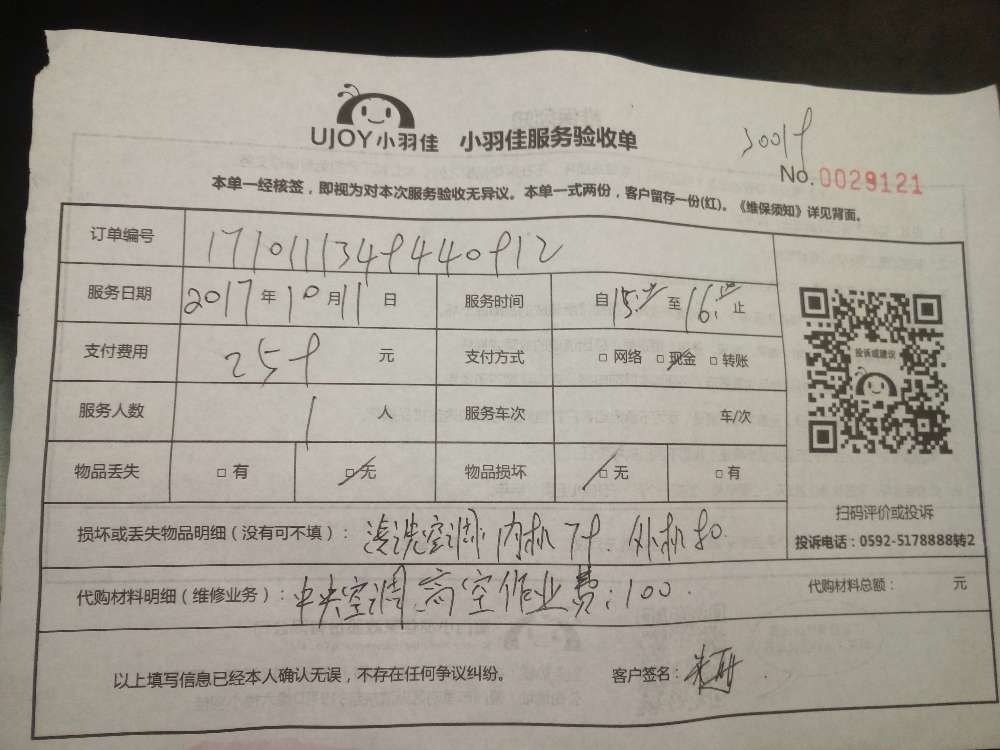 UJOY小羽佳 小羽佳服务验收单
No. 0029121
本单一经核签，即视为对本次服务验收无异议。本单一式两份，客户留存一份(红)。《维保须知》详见背面。
订单编号
服务日期 2017 年 10 月 11 日 服务时间 自 15: 至 16: 止
支付费用 元 支付方式 □ 网络 □ 现金 □ 转账
投诉或建议
服务人数 1 人 服务车次 车/次
物品丢失 □ 有 □ 无 物品损坏 □ 无 □ 有
扫码评价或投诉
损坏或丢失物品明细（没有可不填）： 清洗空调 内机 外机
投诉电话：0592-5178888转2
代购材料明细（维修业务）： 中央空调 高空作业费：100 代购材料总额： 元
以上填写信息已经本人确认无误，不存在任何争议纠纷。 客户签名：